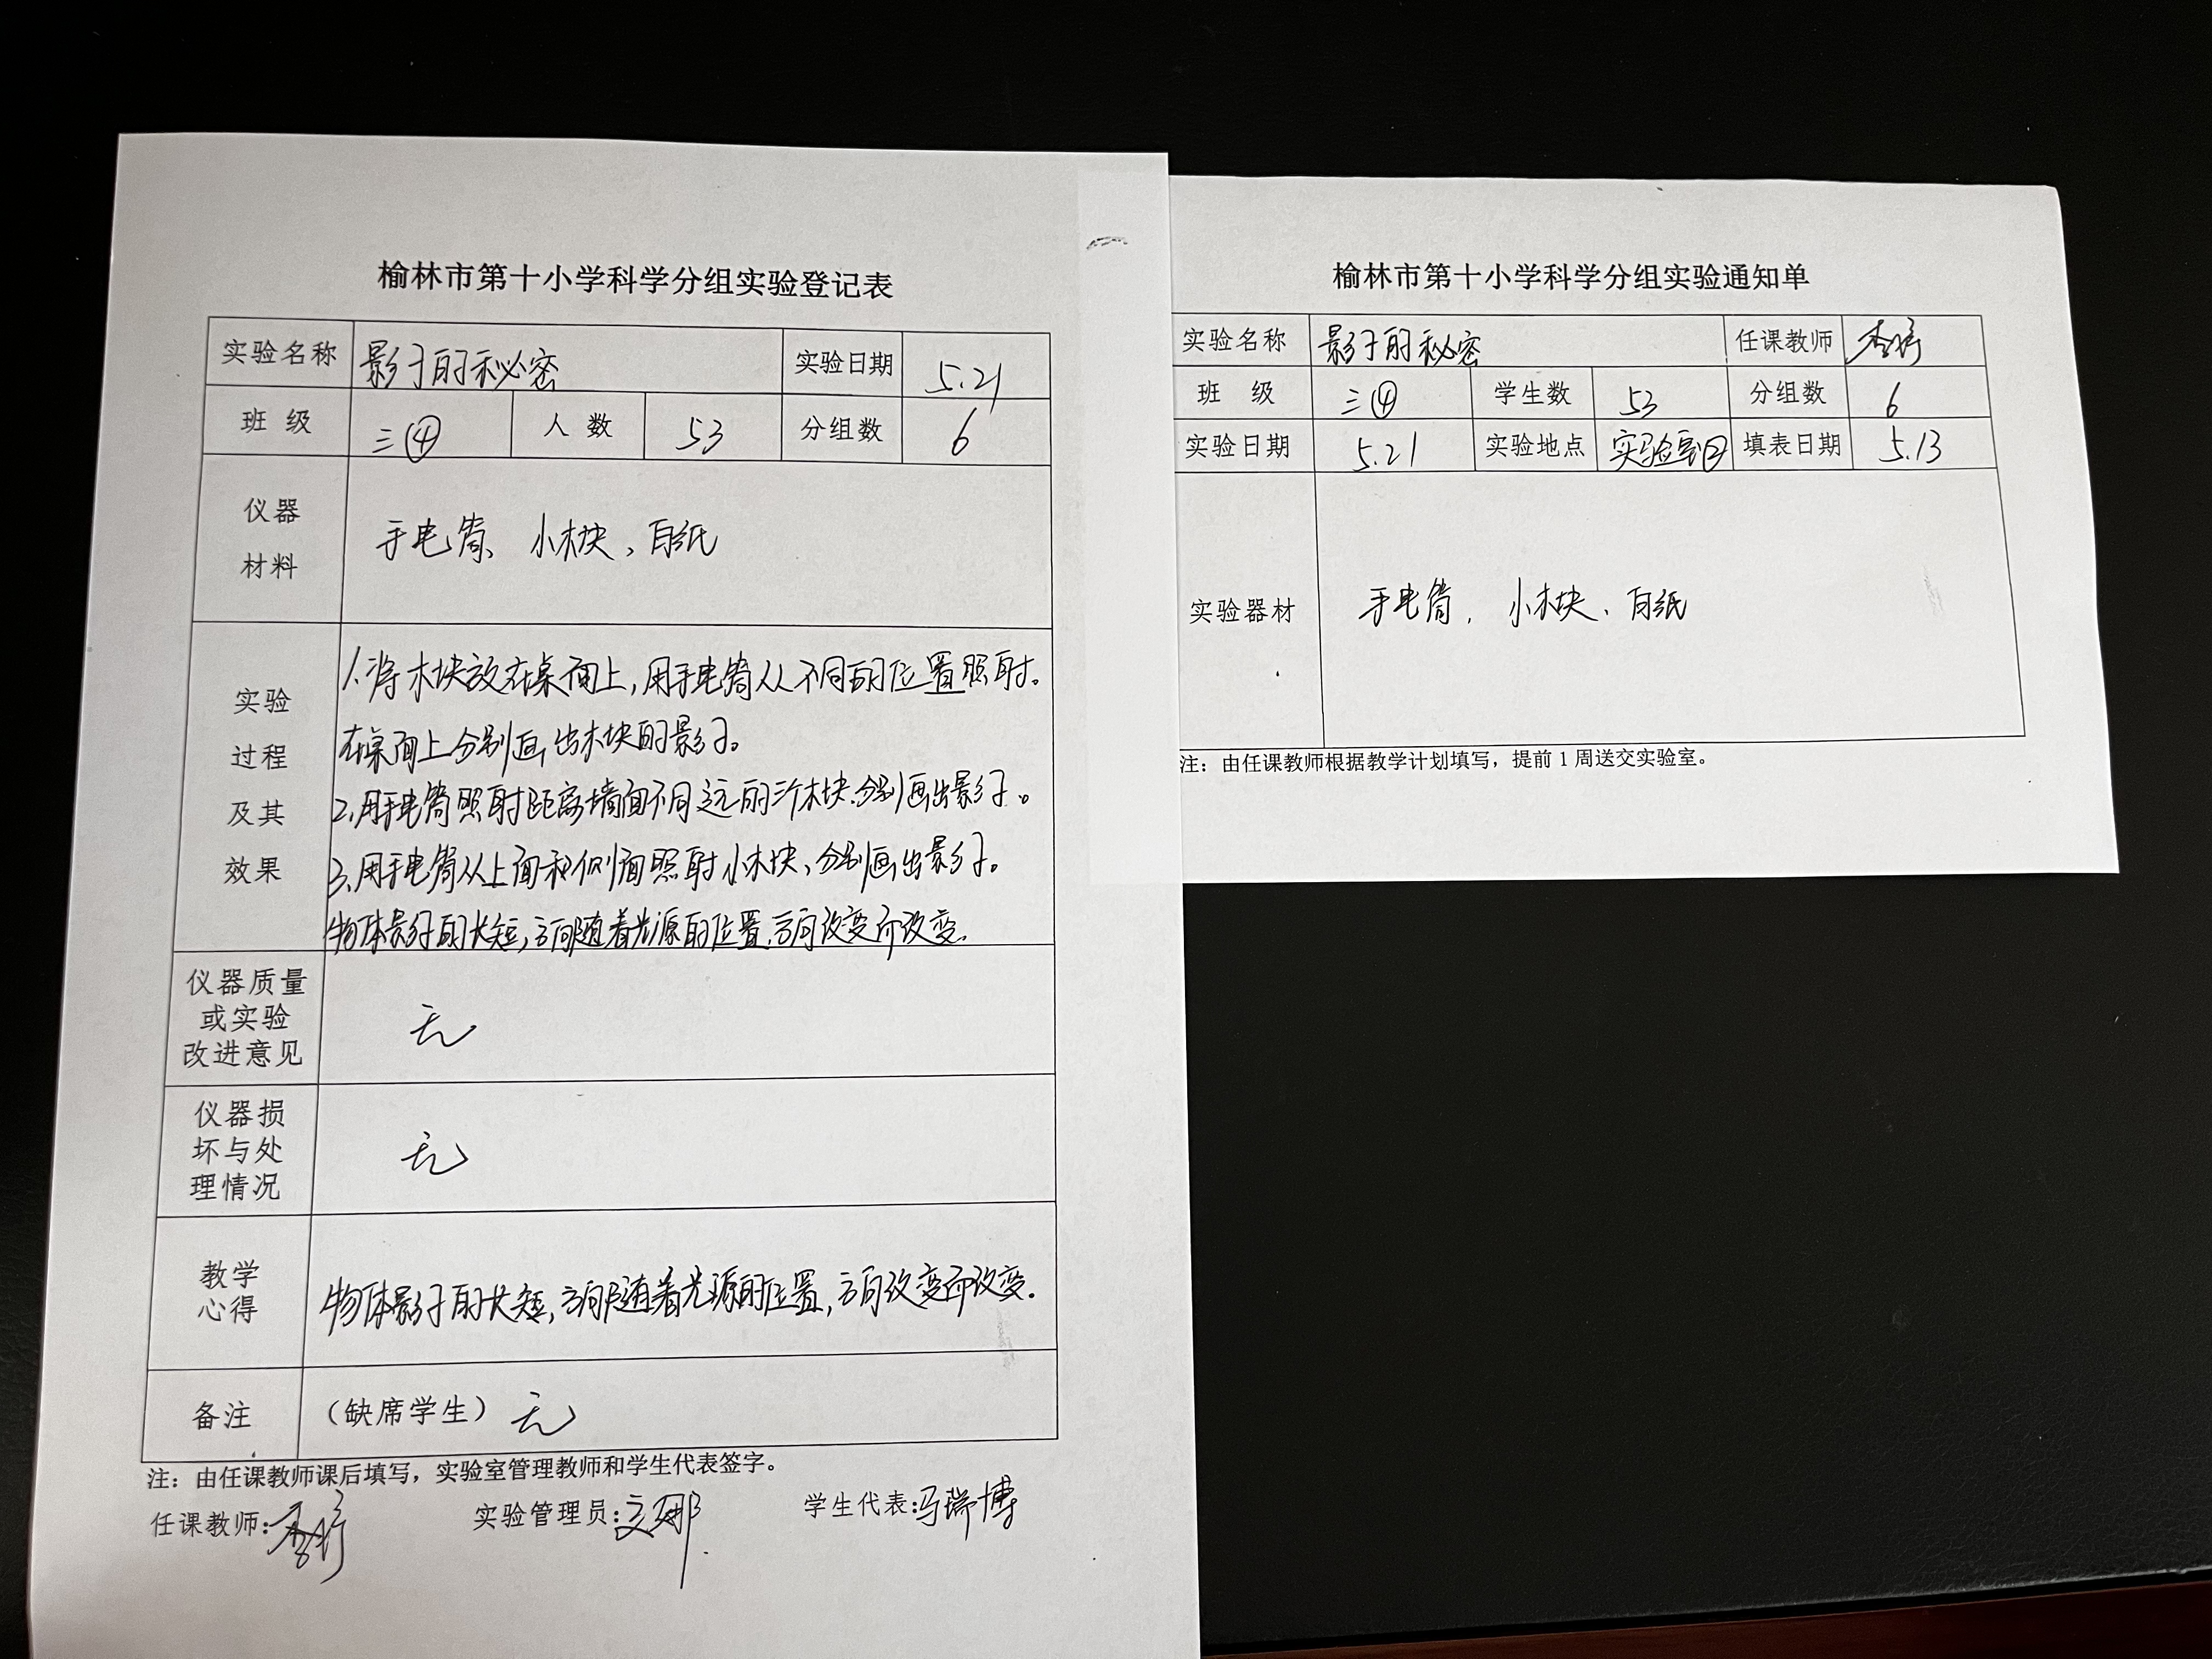 榆林市第十小学科学分组实验登记表
实验名称 影子的秘密 实验日期 5.21
班 级 三④ 人 数 53 分组数 6
仪器
材料
手电筒、小木块、白纸
实验
过程
及其
效果
1.将木块放在桌面上,用手电筒从不同的位置照射。
在桌面上分别画出木块的影子。
2.用手电筒照射距离墙面不同远的三个木块.分别画出影子。
3.用手电筒从上面和侧面照射小木块、分别画出影子。
物体影子的长短,方向随着光源的位置.方向改变而改变.
仪器质量
或实验
改进意见
无
仪器损
坏与处
理情况
无
教学
心得
物体影子的长短,方向随着光源的位置,方向改变而改变.
备注 (缺席学生) 无
注:由任课教师课后填写,实验室管理教师和学生代表签字。
任课教师: 实验管理员: 学生代表:马瑞博
榆林市第十小学科学分组实验通知单
实验名称 影子的秘密 任课教师
班 级 三④ 学生数 53 分组数 6
实验日期 5.21 实验地点 实验室 填表日期 5.13
实验器材 手电筒, 小木块、白纸
注:由任课教师根据教学计划填写,提前1周送交实验室。